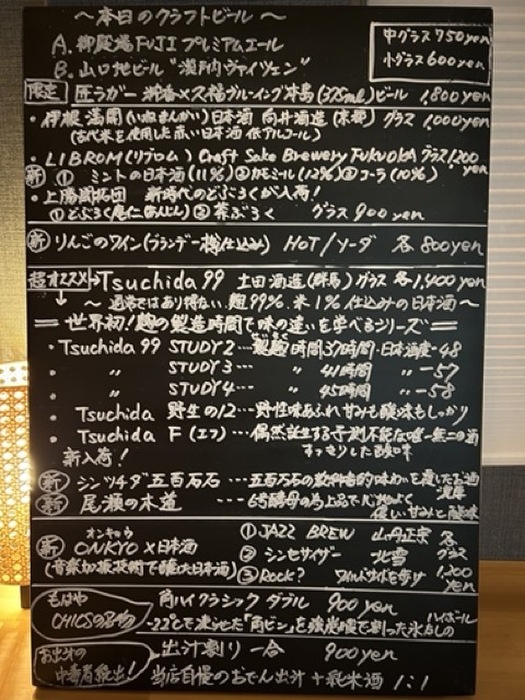 ～本日のクラフトビール～
A. 御殿場FUJIプレミアムエール
B. 山口地ビール "瀬戸内ヴァイツェン"
中グラス 750yen
小グラス 600yen
限定 ラガー ×久福ブルーイング本島(375ml)ビール 1,800yen
・伊根満開(いねまんかい)日本酒 向井酒造(京都) グラス 1,000yen
(古代米を使用した赤い日本酒 低アルコール)
・LIBROM(リブロム) Craft Sake Brewery FUKUOKA グラス1,200yen
新 ① ミントの日本酒(11%) ②カモミール(12%) ③コーラ(10%)
・上膳 新時代のどぶろくが入荷!
①どぶろく ②茶ぶろく グラス 900yen
新 りんごのワイン(ブランデー樽仕込み) HOT/ソーダ 各 800yen
超オススメ→Tsuchida 99 土田酒造(群馬) グラス 各1,400yen
～通常ではあり得ない、麹99%、米1%仕込みの日本酒～
＝世界初!麹の製造時間で味の違いを学べるシリーズ＝
・Tsuchida 99 STUDY2…製麹時間37時間・日本酒度-48
せいきく
・ 〃 STUDY3… 〃 41時間 〃 -57
・ 〃 STUDY4… 〃 45時間 〃 -58
・Tsuchida 野生の12…野性味あふれ甘みも酸味もしっかり
・Tsuchida F(エフ)…偶然誕生する予測不能な唯一無二の酒
新入荷! すっきりした酸味
新 シン・ツチダ 五百万石…五百万石の教科書的味わいを覆したお酒 濃厚
新 尾瀬の木道 …6号酵母の為上品で心地よく
優しい甘みと酸味
新 オンキョウ
ONKYO×日本酒
(音楽加振技術で醸した日本酒)
①JAZZ BREW 山丹正宗
② シンセサイザー 北雪
③Rock? ワイルドサイドを歩け
各グラス 1,200yen
もはやCHICSの名物
角ハイクラシック ダブル 900yen
-22℃で凍らせた「角ビン」を強炭酸で割った氷なしのハイボール
お出汁の中毒者続出!
出汁割り 一合 900yen
当店自慢のおでん出汁+純米酒 1:1